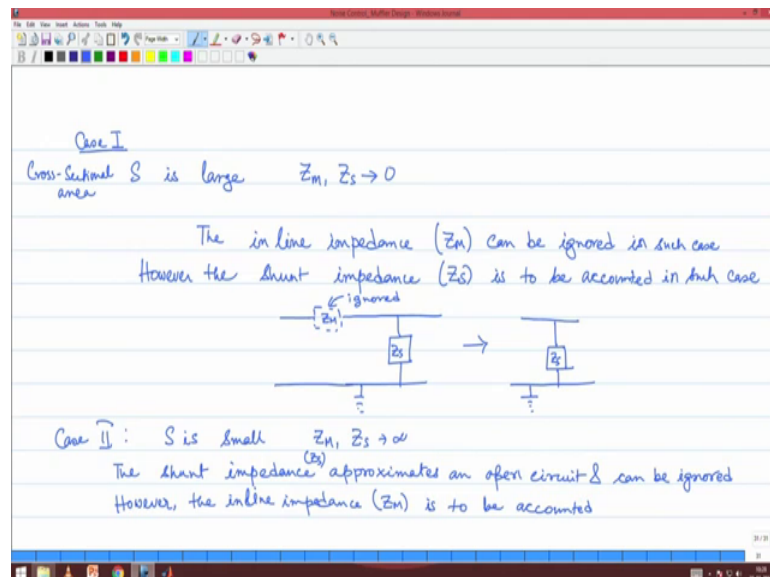 Noise Control_Muffler Design - Windows Journal
File Edit View Insert Actions Tools Help
Page Width
B I
Case I
Cross-Sectional S is large Z_M, Z_S → 0
area
The in line impedance (Z_M) can be ignored in such case
However the shunt impedance (Z_S) is to be accounted in such case
ignored
Z_M
Z_S → Z_S
Case II : S is small Z_M, Z_S → ∞
The shunt impedance (Z_S) approximates an open circuit & can be ignored
However, the inline impedance (Z_M) is to be accounted
31/31
31